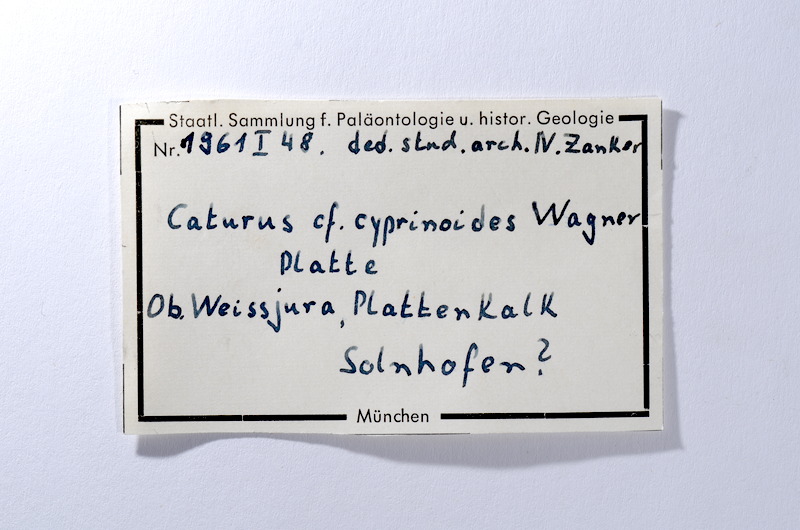 Staatl. Sammlung f. Paläontologie u. histor. Geologie
Nr. 1961 I 48. ded. stud. arch. N. Zanker
Caturus cf. cyprinoides Wagner
Platte
Ob. Weissjura, Plattenkalk
Solnhofen?
München